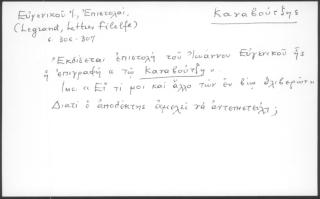 Εὐγενικοῦ Ἰ, Ἐπιστολαί,
Καναβούτζης
(Legrand, Lettres Filelfe)
σ. 306-307
"Ἐκδίδεται ἐπιστολὴ τοῦ Ἰωάννου Εὐγενικοῦ ἧς
ἡ ἐπιγραφὴ « τῷ Καναβούτζη ».
« Εἴ τί μοι καὶ ἄλλο τῶν ἐν βίῳ θλιβερῶν »
Διατί ὁ ἀποδέκτης ἀμελεῖ νὰ ἀντεπιστείλῃ;